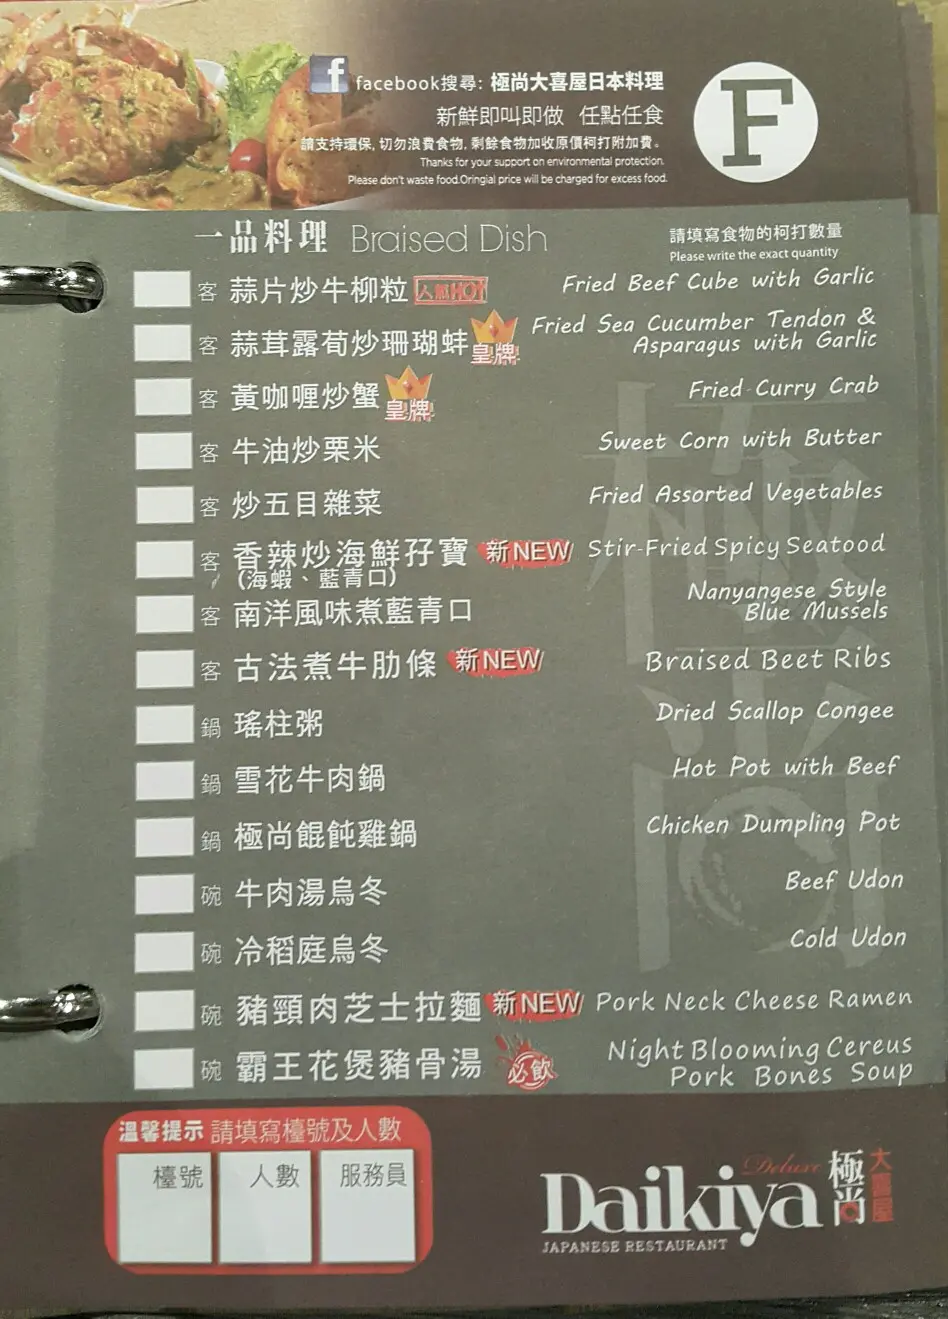 facebook搜尋: 極尚大喜屋日本料理
新鮮即叫即做 任點任食
請支持環保, 切勿浪費食物, 剩餘食物加收原價柯打附加費。
Thanks for your support on environmental protection.
Please don't waste food.Oringial price will be charged for excess food.
F
一品料理 Braised Dish
請填寫食物的柯打數量
Please write the exact quantity
客 蒜片炒牛柳粒 人氣HOT Fried Beef Cube with Garlic
客 蒜茸露荀炒珊瑚蚌 皇牌 Fried Sea Cucumber Tendon &
Asparagus with Garlic
客 黃咖喱炒蟹 皇牌 Fried Curry Crab
客 牛油炒栗米 Sweet Corn with Butter
客 炒五目雜菜 Fried Assorted Vegetables
客 香辣炒海鮮孖寶 新NEW Stir-Fried Spicy Seatood
(海蝦、藍青口)
客 南洋風味煮藍青口 Nanyangese Style
Blue Mussels
客 古法煮牛肋條 新NEW Braised Beet Ribs
鍋 瑤柱粥 Dried Scallop Congee
鍋 雪花牛肉鍋 Hot Pot with Beef
鍋 極尚餛飩雞鍋 Chicken Dumpling Pot
碗 牛肉湯烏冬 Beef Udon
碗 冷稻庭烏冬 Cold Udon
碗 豬頸肉芝士拉麵 新NEW Pork Neck Cheese Ramen
碗 霸王花煲豬骨湯 必飲 Night Blooming Cereus
Pork Bones Soup
溫馨提示 請填寫檯號及人數
檯號 人數 服務員
Deluxe
Daikiya 極尚 大喜屋
JAPANESE RESTAURANT
極尚